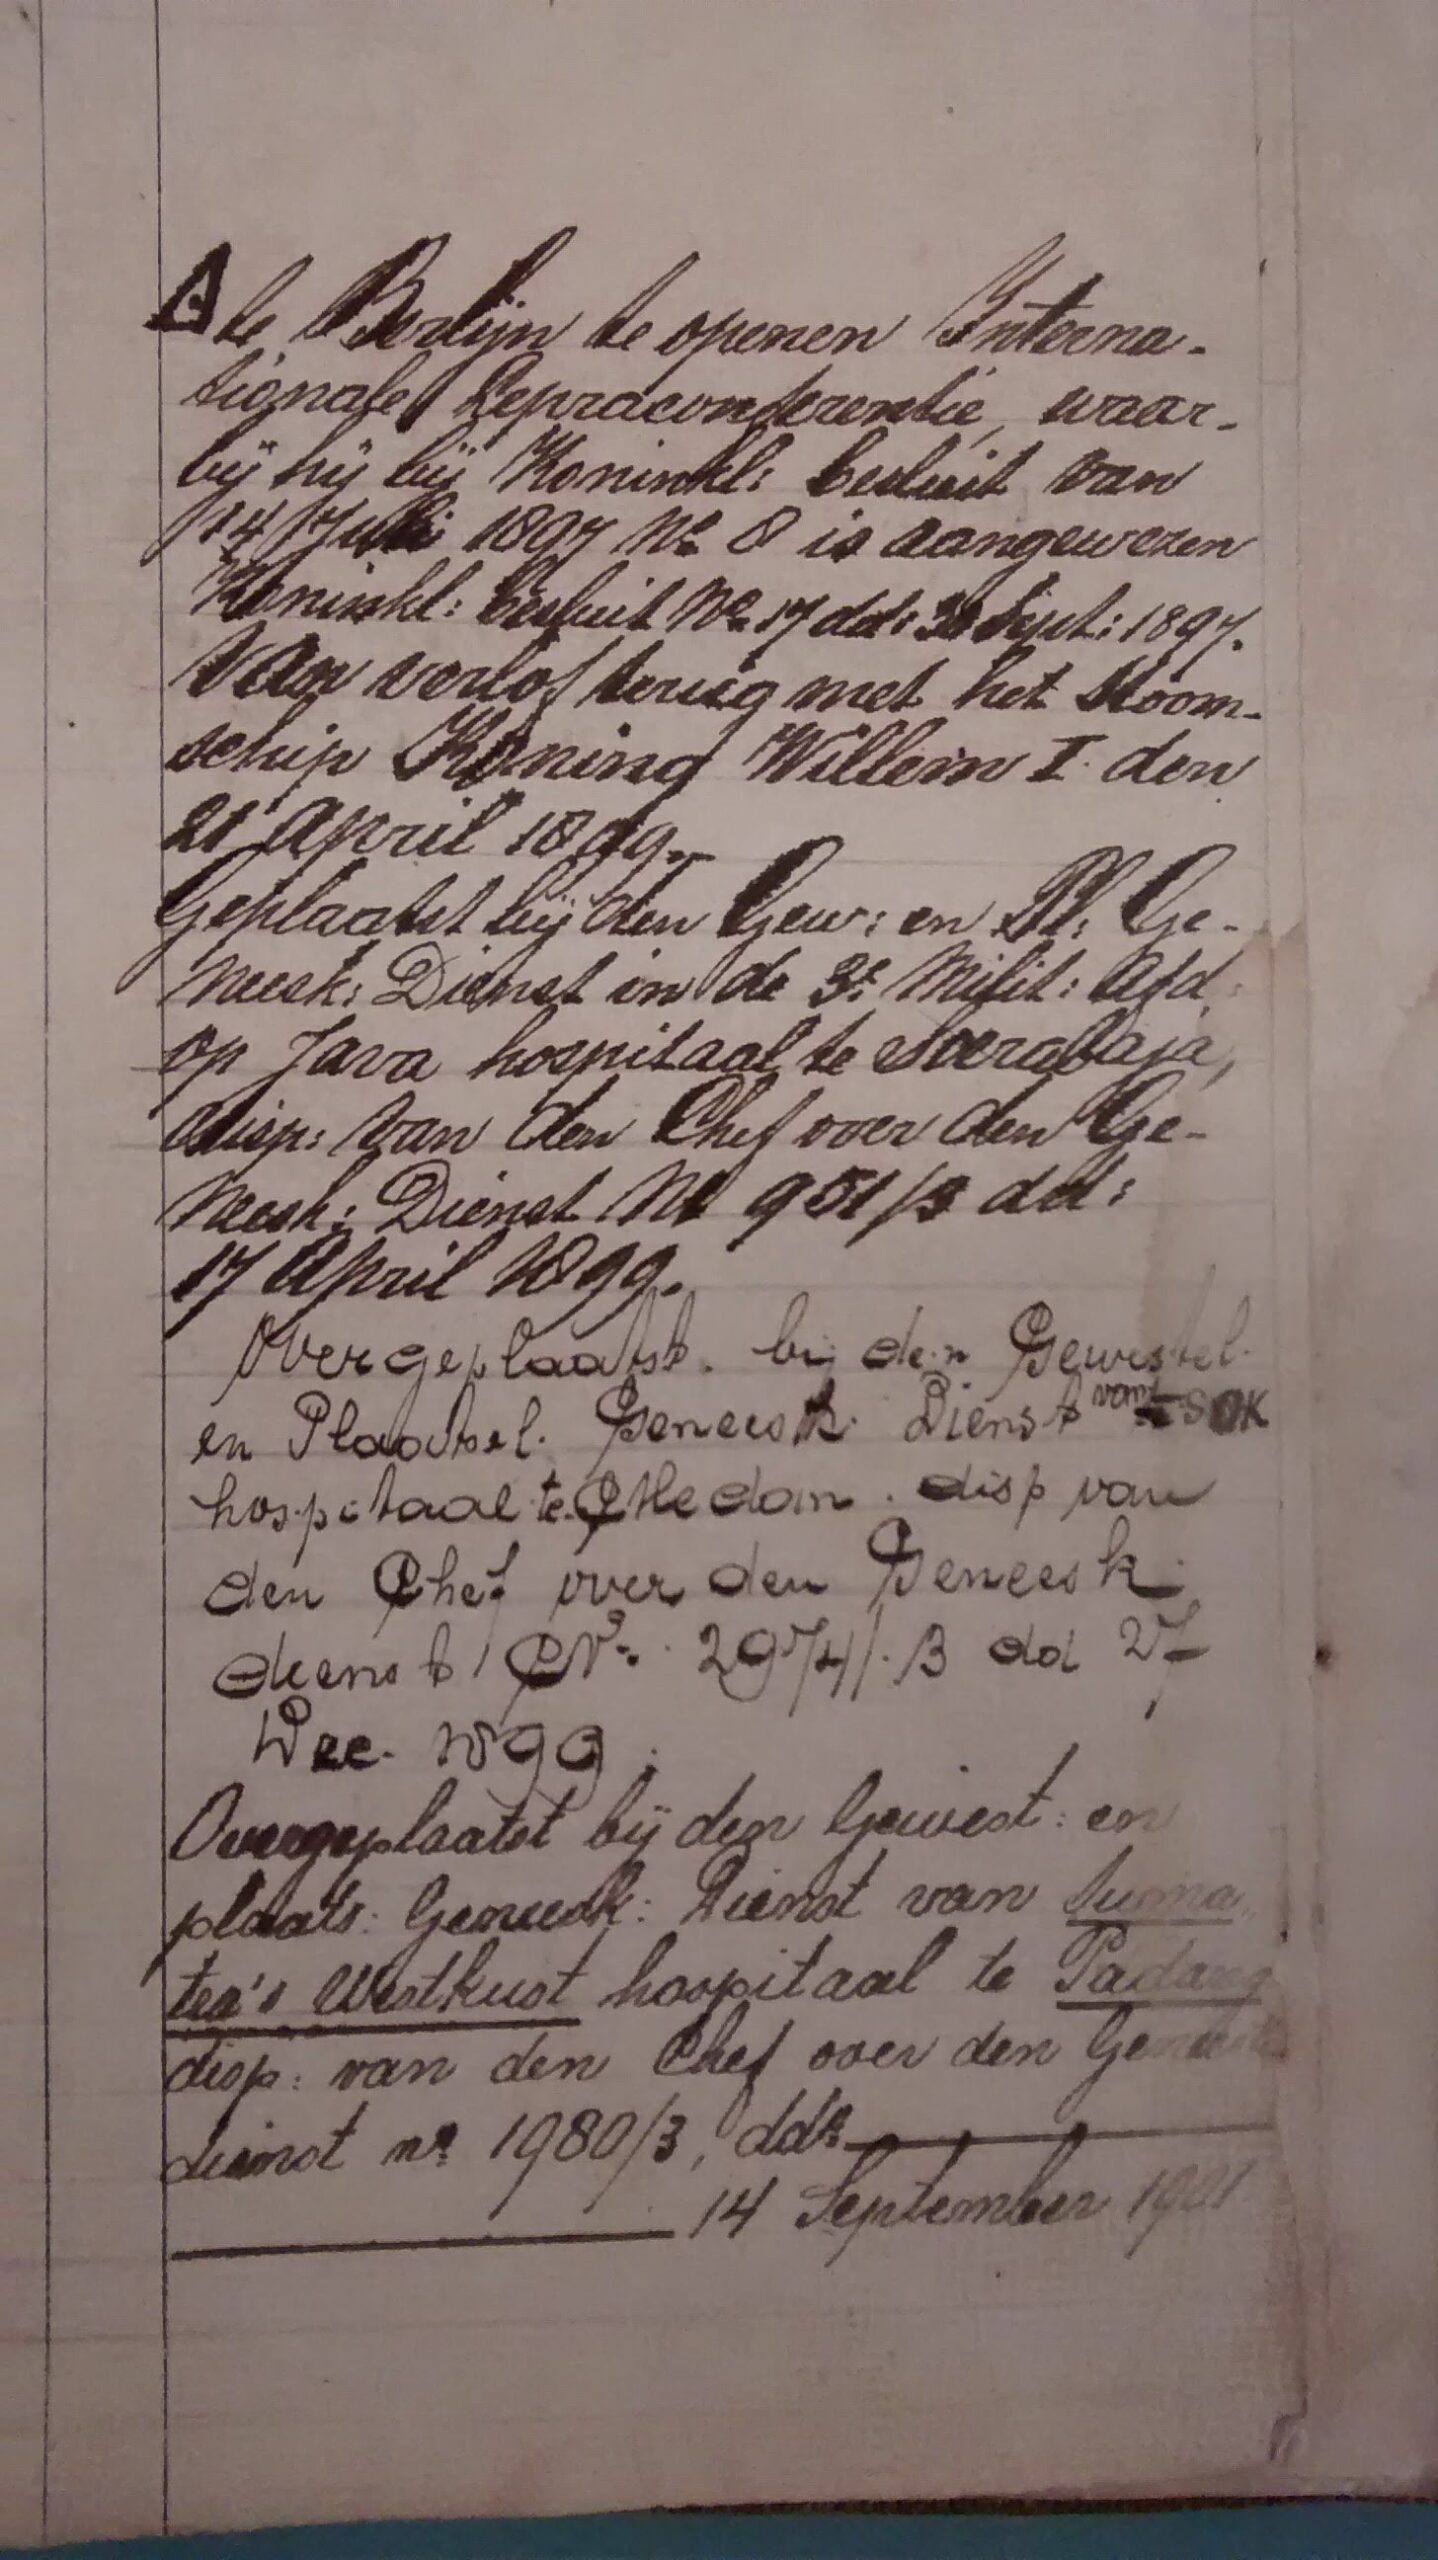 A te Berlijn te openen Interna-
tionale Lepraconferentie, waar-
bij hij bij Koninkl: besluit van
14 Juli 1897 No 8 is aangewezen
Koninkl: besluit No 17 dd: 30 Sept: 1897.
Van verlof terug met het stoom-
schip Koning Willem I den
21 April 1899.
Geplaatst bij den Gew: en Pl: Ge-
neesk: Dienst in de 3e Milit: Afd:
op Java hospitaal te Soerabaja,
disp: van den Chef over den Ge-
neesk: Dienst No 951/3 dd:
17 April 1899.
Overgeplaatst. bij den Gewestel.
en Plaatsel. Geneesk. Dienst van SOK
hospitaal te Medan. disp van
den Chef over den Geneesk.
dienst No. 2974/3 dd 27
Dec. 1899.
Overgeplaatst bij den Gewest: en
plaats: Geneesk: Dienst van Suma-
tra's Westkust hospitaal te Padang
disp: van den Chef over den Geneesk
dienst no 1980/3, dd
14 September 1901